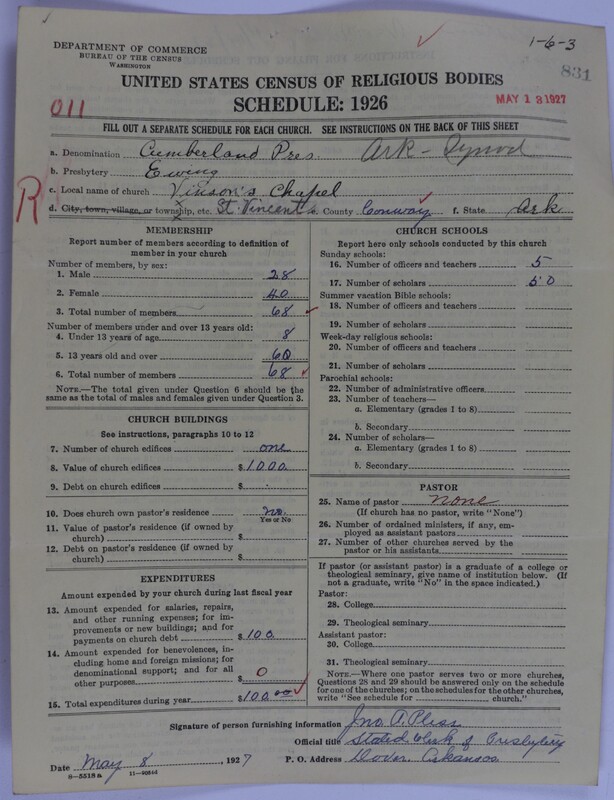 1-6-3
DEPARTMENT OF COMMERCE
BUREAU OF THE CENSUS
WASHINGTON
831
UNITED STATES CENSUS OF RELIGIOUS BODIES
SCHEDULE: 1926
MAY 13 1927
011
FILL OUT A SEPARATE SCHEDULE FOR EACH CHURCH. SEE INSTRUCTIONS ON THE BACK OF THIS SHEET
a. Denomination Cumberland Pres. Ark-Synod
b. Presbytery Ewing
R
c. Local name of church Vinson's Chapel
d. City, town, village, or township, etc. St. Vincent e. County Conway f. State Ark
MEMBERSHIP
Report number of members according to definition of
member in your church
Number of members, by sex:
1. Male 28
2. Female 40
3. Total number of members 68
Number of members under and over 13 years old:
4. Under 13 years of age 8
5. 13 years old and over 60
6. Total number of members 68
NOTE.—The total given under Question 6 should be the
same as the total of males and females given under Question 3.
CHURCH BUILDINGS
See instructions, paragraphs 10 to 12
7. Number of church edifices one
8. Value of church edifices $1000.
9. Debt on church edifices $
10. Does church own pastor's residence no.
Yes or No
11. Value of pastor's residence (if owned by
church) $
12. Debt on pastor's residence (if owned by
church) $
EXPENDITURES
Amount expended by your church during last fiscal year
13. Amount expended for salaries, repairs,
and other running expenses; for im-
provements or new buildings; and for
payments on church debt $100.
14. Amount expended for benevolences, in-
cluding home and foreign missions; for
denominational support; and for all
other purposes $ 0
15. Total expenditures during year $100.00
CHURCH SCHOOLS
Report here only schools conducted by this church
Sunday schools:
16. Number of officers and teachers 5
17. Number of scholars 50
Summer vacation Bible schools:
18. Number of officers and teachers
19. Number of scholars
Week-day religious schools:
20. Number of officers and teachers
21. Number of scholars
Parochial schools:
22. Number of administrative officers
23. Number of teachers—
a. Elementary (grades 1 to 8)
b. Secondary
24. Number of scholars—
a. Elementary (grades 1 to 8)
b. Secondary
PASTOR
25. Name of pastor none
(If church has no pastor, write "None")
26. Number of ordained ministers, if any, em-
ployed as assistant pastors
27. Number of other churches served by the
pastor or his assistants
If pastor (or assistant pastor) is a graduate of a college or
theological seminary, give name of institution below. (If
not a graduate, write "No" in the space indicated.)
Pastor:
28. College
29. Theological seminary
Assistant pastor:
30. College
31. Theological seminary
NOTE.—Where one pastor serves two or more churches,
Questions 28 and 29 should be answered only on the schedule
for one of the churches; on the schedules for the other churches,
write "See schedule for church."
Signature of person furnishing information Jno. A. Pless
Official title Stated Clerk of Presbytery
Date May 8, 1927 P. O. Address Dover Arkansas
8-5518 a